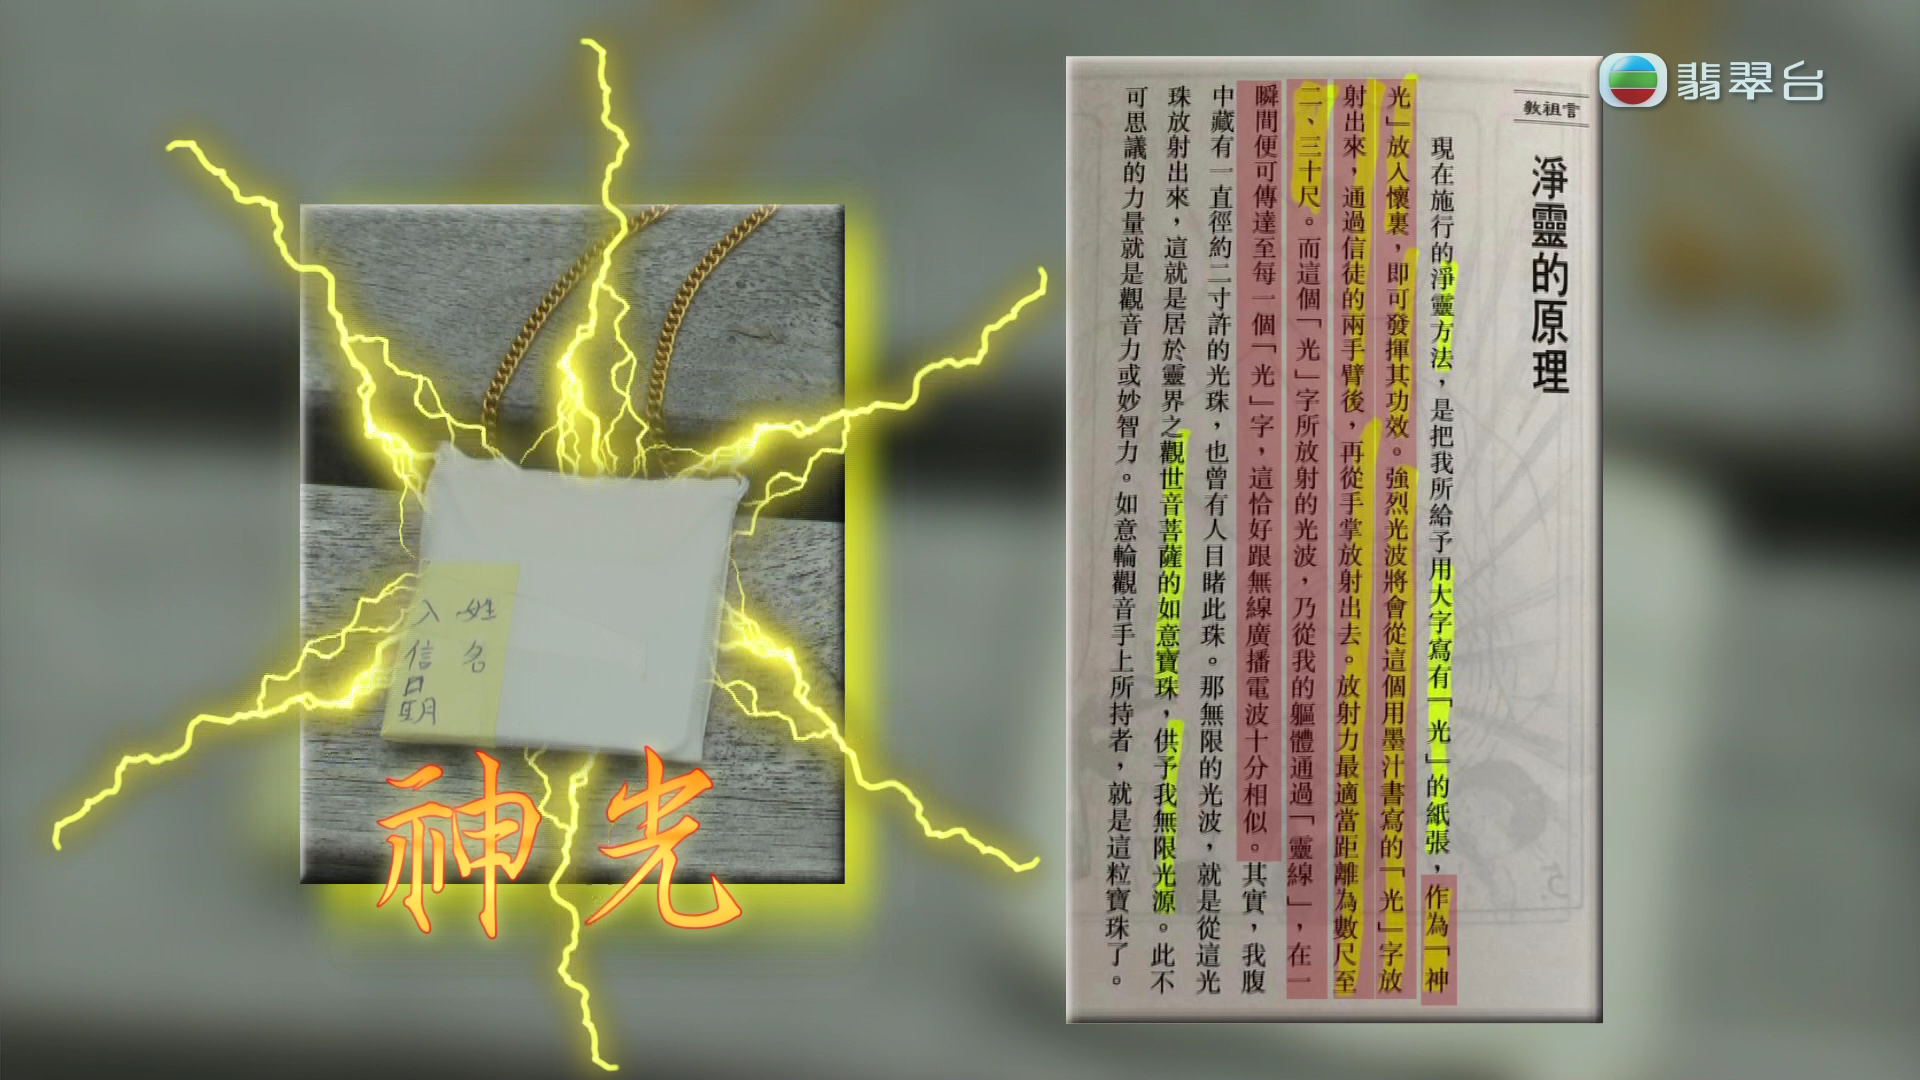 翡翠台
教祖言
淨靈的原理
現在施行的淨靈方法，是把我所給予用大字寫有「光」的紙張，作為「神
光」放入懷裏，即可發揮其功效。強烈光波將會從這個用墨汁書寫的「光」字放
射出來，通過信徒的兩手臂後，再從手掌放射出去。放射力最適當距離為數尺至
二、三十尺。而這個「光」字所放射的光波，乃從我的軀體通過「靈線」，在一
瞬間便可傳達至每一個「光」字，這恰好跟無線廣播電波十分相似。其實，我腹
中藏有一直徑約二寸許的光珠，也曾有人目睹此珠。那無限的光波，就是從這光
珠放射出來，這就是居於靈界之觀世音菩薩的如意寶珠，供予我無限光源。此不
可思議的力量就是觀音力或妙智力。如意輪觀音手上所持者，就是這粒寶珠了。
姓名
入信日期
神光